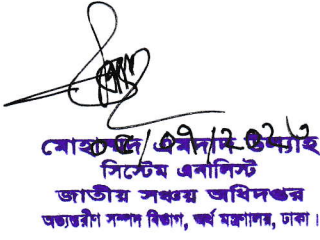 মোহাম্মদ এমদাদ উল্যাহ
সিস্টেম এনালিস্ট
জাতীয় সঞ্চয় অধিদপ্তর
অভ্যন্তরীণ সম্পদ বিভাগ, অর্থ মন্ত্রণালয়, ঢাকা।